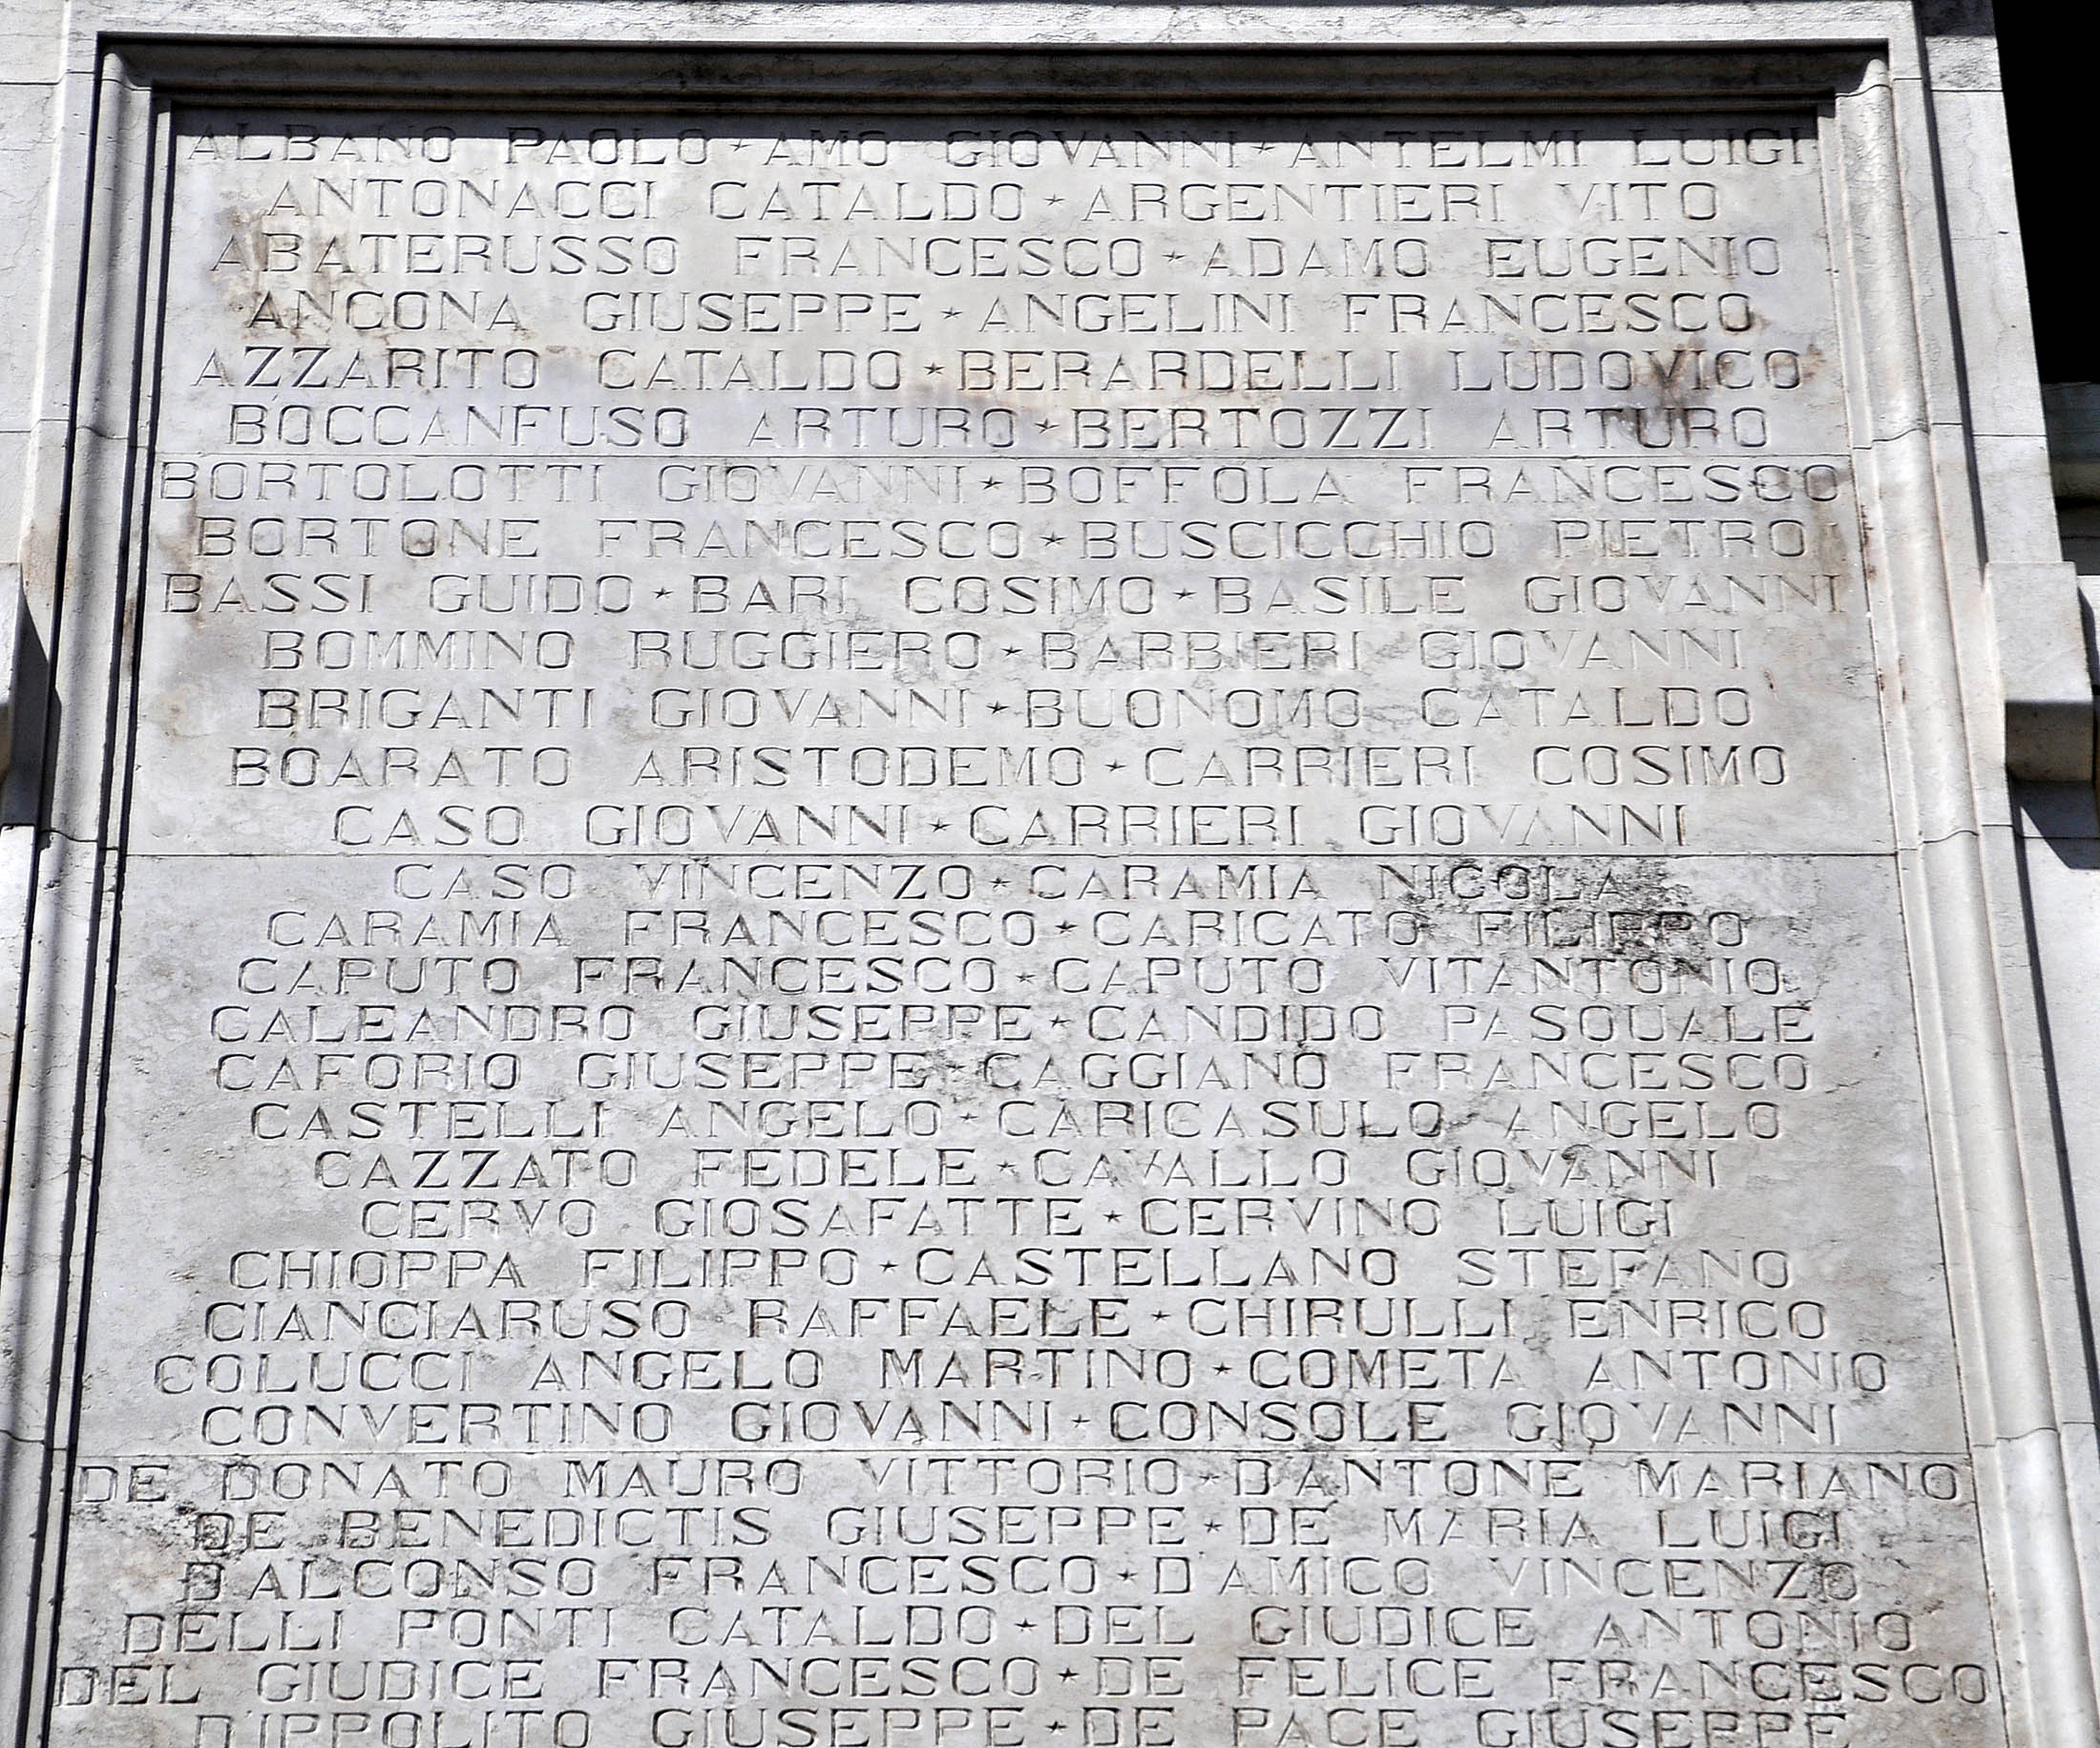 ALBANO PAOLO ⋆ AMO GIOVANNI ⋆ ANTELMI LUIGI
ANTONACCI CATALDO ⋆ ARGENTIERI VITO
ABATERUSSO FRANCESCO ⋆ ADAMO EUGENIO
ANCONA GIUSEPPE ⋆ ANGELINI FRANCESCO
AZZARITO CATALDO ⋆ BERARDELLI LUDOVICO
BOCCANFUSO ARTURO ⋆ BERTOZZI ARTURO
BORTOLOTTI GIOVANNI ⋆ BOFFOLA FRANCESCO
BORTONE FRANCESCO ⋆ BUSCICCHIO PIETRO
BASSI GUIDO ⋆ BARI COSIMO ⋆ BASILE GIOVANNI
BOMMINO RUGGIERO ⋆ BARBIERI GIOVANNI
BRIGANTI GIOVANNI ⋆ BUONOMO CATALDO
BOARATO ARISTODEMO ⋆ CARRIERI COSIMO
CASO GIOVANNI ⋆ CARRIERI GIOVANNI
CASO VINCENZO ⋆ CARAMIA NICOLA
CARAMIA FRANCESCO ⋆ CARICATO FILIPPO
CAPUTO FRANCESCO ⋆ CAPUTO VITANTONIO
CALEANDRO GIUSEPPE ⋆ CANDIDO PASQUALE
CAFORIO GIUSEPPE ⋆ CAGGIANO FRANCESCO
CASTELLI ANGELO ⋆ CARICASULO ANGELO
CAZZATO FEDELE ⋆ CAVALLO GIOVANNI
CERVO GIOSAFATTE ⋆ CERVINO LUIGI
CHIOPPA FILIPPO ⋆ CASTELLANO STEFANO
CIANCIARUSO RAFFAELE ⋆ CHIRULLI ENRICO
COLUCCI ANGELO MARTINO ⋆ COMETA ANTONIO
CONVERTINO GIOVANNI ⋆ CONSOLE GIOVANNI
DE DONATO MAURO VITTORIO ⋆ D'ANTONE MARIANO
DE BENEDICTIS GIUSEPPE ⋆ DE MARIA LUIGI
D'ALCONSO FRANCESCO ⋆ D'AMICO VINCENZO
DELLI PONTI CATALDO ⋆ DEL GIUDICE ANTONIO
DEL GIUDICE FRANCESCO ⋆ DE FELICE FRANCESCO
D'IPPOLITO GIUSEPPE ⋆ DE PACE GIUSEPPE